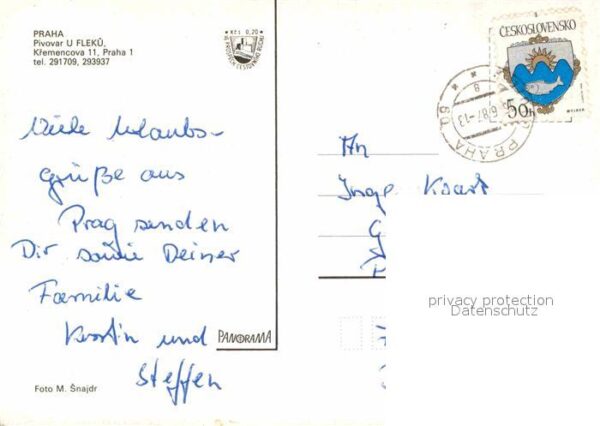 PRAHA
Pivovar U FLEKŮ,
Křemencova 11, Praha 1
tel. 291709, 293937
Kčs 0,20
ČESKOSLOVENSKO
50h
PRAHA
Viele Urlaubs-
grüße aus
Prag senden
Dir sowie Deiner
Familie
Kerstin und
Steffen
An
PANORAMA
Foto M. Šnajdr
privacy protection
Datenschutz